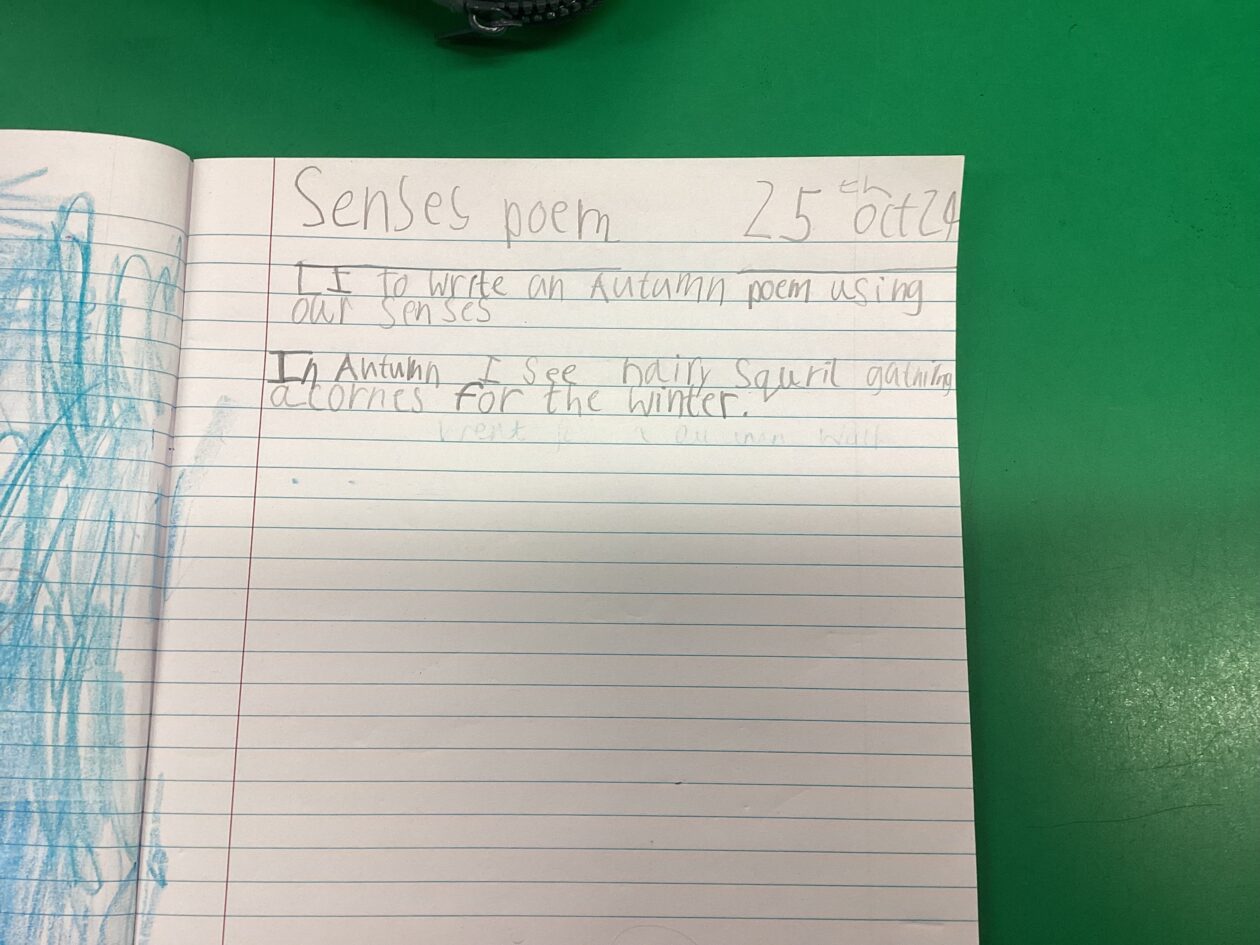 Senses poem 25th oct 24
LI to write an Autumn poem using
our senses
In Autumn I see hairy Squril gathring
acornes for the winter.